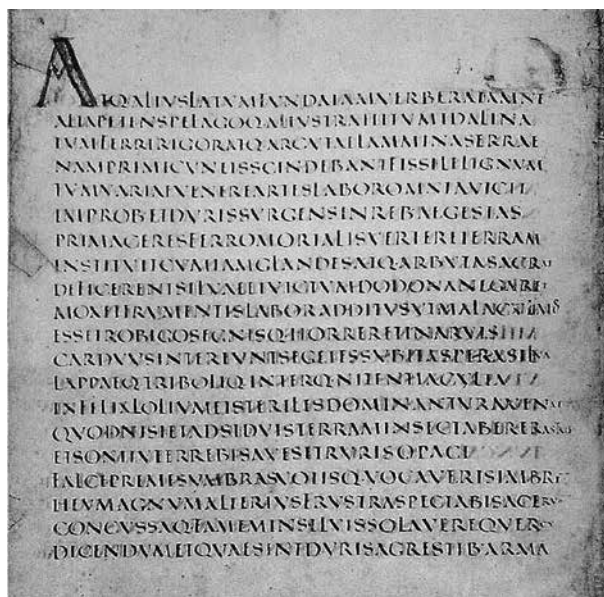 ATQ·ALIVSLATVMFVNDAIAMVERBERATAMNE
ALTAPETENSPELAGOQ·ALIVSTRAHITVMIDALINA
TVMFERRIRIGORATQ·ARGVTAELAMMINASERRAE
NAMPRIMICVNEISSCINDEBANTFISSILELIGNVM
TVMVARIAEVENEREARTESLABOROMNIAVICIT
IMPROBETDVRISSVRGENSINREB·AEGESTAS
PRIMACERESFERROMORTALISVERTERETERRAM
INSTITVITCVMIAMGLANDESATQ·ARBVTASACRAE
DEFICERENTSILVAEETVICTVMDODONANEGARET
MOXETFRVMENTISLABORADDITUSVTMALA
ESSETROBIGOSEGNISQ·HORRERETINARVIS
CARDVVSINTEREVNTSEGETESSVBITASPERASILVA
LAPPAEQ·TRIBOLIQ·INTERQ·NITENTIACVLTA
INFELIXLOLIVMETSTERILESDOMINANTVRAVENAE
QVODNISIETADSIDVISTERRAMINSECTABERERASTRIS
ETSONITVTERREBISAVESETRVRISOPACI
FALCEPREMESVMBRASVOTISQVOCAVERISIMBRE
HEVMAGNVMALTERIVSFRVSTRASPECTABISACERV
CONCVSSAQ·FAMEMINSILVISSOLAVEREQVERCV
DICENDVMETQVAESINTDVRISAGRESTIB·ARMA